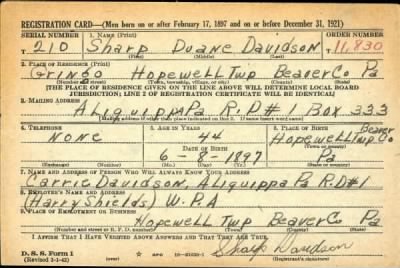 REGISTRATION CARD—(Men born on or after February 17, 1897 and on or before December 31, 1921)
SERIAL NUMBER 1. NAME (Print) ORDER NUMBER
T 210 Sharp Duane Davidson T11,830
(First) (Middle) (Last)
2. PLACE OF RESIDENCE (Print)
Gringo Hopewell Twp Beaver Co Pa
(Number and street) (Town, township, village, or city) (County) (State)
[THE PLACE OF RESIDENCE GIVEN ON THE LINE ABOVE WILL DETERMINE LOCAL BOARD
JURISDICTION; LINE 2 OF REGISTRATION CERTIFICATE WILL BE IDENTICAL]
3. MAILING ADDRESS
Aliquippa Pa. R.D# 1 Box 333
[Mailing address if other than place indicated on line 2. If same insert word same]
4. TELEPHONE 5. AGE IN YEARS 6. PLACE OF BIRTH
None 44 Hopewell Twp Beaver Co
DATE OF BIRTH
6-8-1897 Pa
(Exchange) (Number) (Mo.) (Day) (Yr.) (State or country)
7. NAME AND ADDRESS OF PERSON WHO WILL ALWAYS KNOW YOUR ADDRESS
Carrie Davidson, Aliquippa Pa R.D#1
8. EMPLOYER'S NAME AND ADDRESS
(Harry Shields) W.P.A
9. PLACE OF EMPLOYMENT OR BUSINESS
Hopewell Twp Beaver Co Pa
(Number and street or R. F. D. number) (Town) (County) (State)
I AFFIRM THAT I HAVE VERIFIED ABOVE ANSWERS AND THAT THEY ARE TRUE.
D. S. S. Form 1
(Revised 1-1-42) (over) Sharp Davidson
(Registrant's signature)